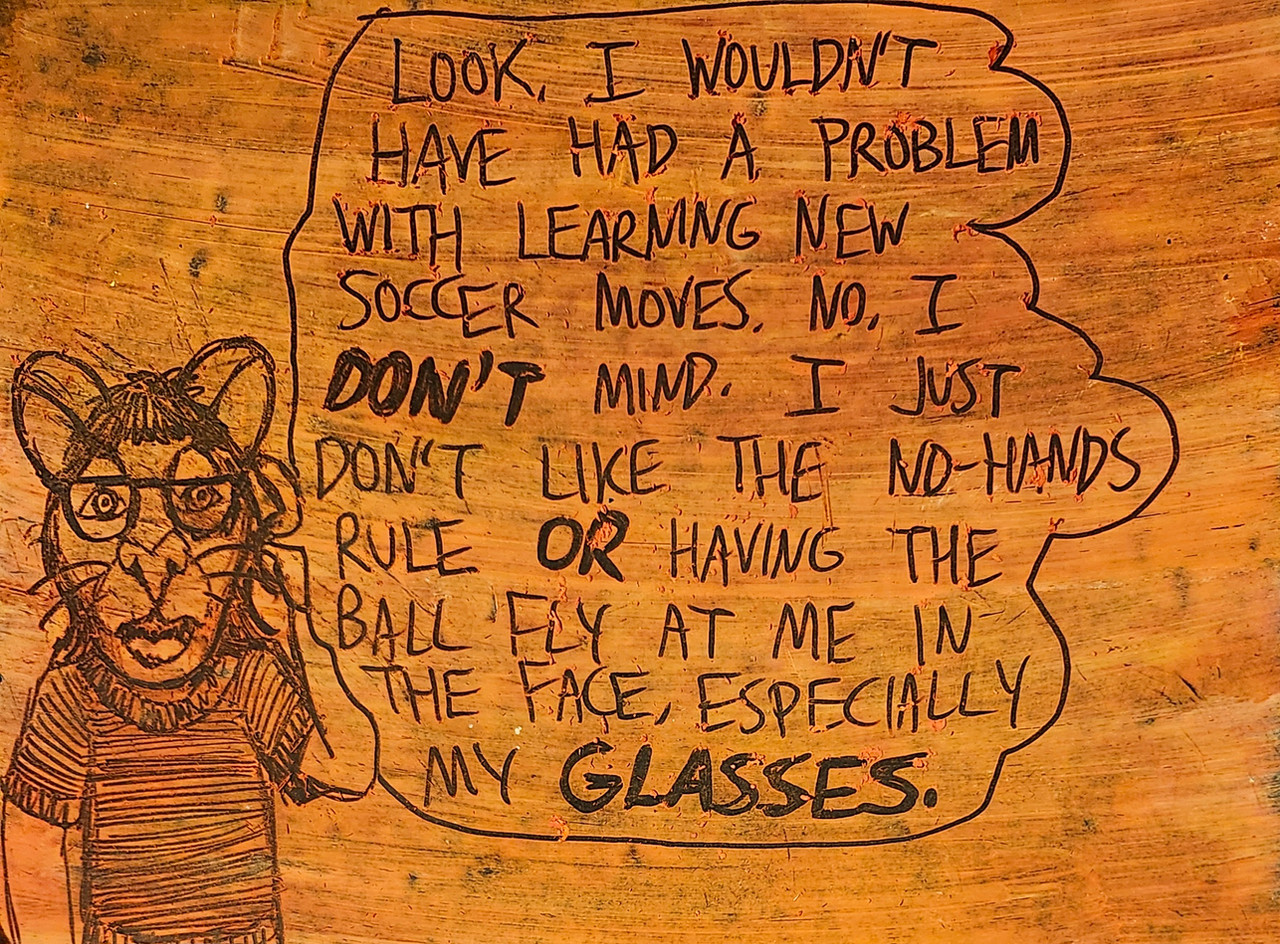 LOOK, I WOULDN'T
HAVE HAD A PROBLEM
WITH LEARNING NEW
SOCCER MOVES. NO, I
DON'T MIND. I JUST
DON'T LIKE THE NO-HANDS
RULE OR HAVING THE
BALL FLY AT ME IN
THE FACE, ESPECIALLY
MY GLASSES.